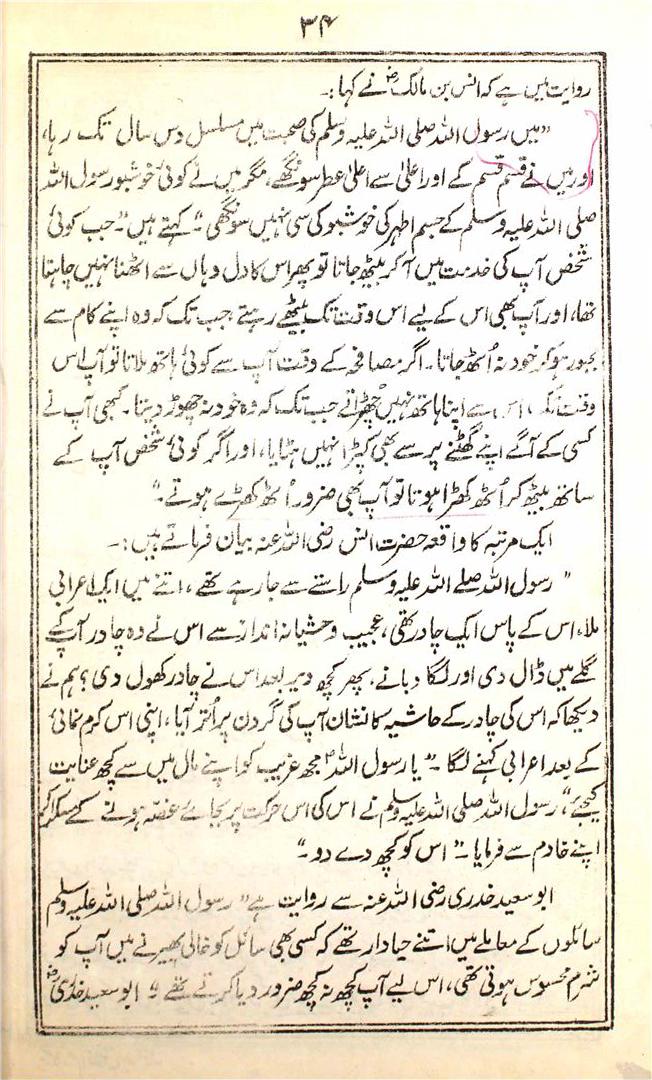 ۳۴
روایت میں ہے کہ انس بن مالکؓ نے کہا :۔
”میں رسول اللہ صلی اللہ علیہ وسلم کی صحبت میں مسلسل دس سال تک رہا،
اور میں نے قسم قسم کے اور اعلیٰ سے اعلیٰ عطر سونگھے، مگر میں نے کوئی خوشبو رسول اللہ
صلی اللہ علیہ وسلم کے جسم اطہر کی خوشبو کی سی نہیں سونگھی“۔ کہتے ہیں”۔ جب کوئی
شخص آپ کی خدمت میں آ کر بیٹھ جاتا تو پھر اس کا دل وہاں سے اٹھنا نہیں چاہتا
تھا، اور آپ بھی اس کے لیے اس وقت تک بیٹھے رہتے، جب تک کہ وہ اپنے کام سے
مجبور ہو کر خود نہ اُٹھ جاتا۔ اگر مصافحہ کے وقت آپ سے کوئی ہاتھ ملاتا تو آپ اس
وقت تک اس سے اپنا ہاتھ نہیں چھڑاتے جب تک کہ وہ خود نہ چھوڑ دیتا۔ کبھی آپ نے
کسی کے آگے اپنے گھٹنے پر سے بھی کپڑا نہیں ہٹایا، اور اگر کوئی شخص آپ کے
ساتھ بیٹھ کر اُٹھ کھڑا ہوتا تو آپ بھی ضرور اُٹھ کھڑے ہوتے۔“
ایک مرتبہ کا واقعہ حضرت انس رضی اللہ عنہ بیان فرماتے ہیں :۔
”رسول اللہ صلے اللہ علیہ وسلم راستے سے جا رہے تھے، اتنے میں ایک اعرابی
ملا، اس کے پاس ایک چادر تھی، عجیب وحشیانہ انداز سے اس نے وہ چادر آپ کے
گلے میں ڈال دی اور لگا دبانے، پھر کچھ دیر بعد اس نے چادر کھول دی؟ ہم نے
دیکھا کہ اس کی چادر کے حاشیہ کا نشان آپ کی گردن پر اُتر آیا، اپنی اس کرم نمائی
کے بعد اعرابی کہنے لگا۔ ”یا رسول اللہؐ مجھ غریب کو اپنے مال میں سے کچھ عنایت
کیجیے“، رسول اللہ صلی اللہ علیہ وسلم نے اس کی اس حرکت پر بجائے غصہ ہونے کے مسکرا کر
اپنے خادم سے فرمایا۔ ”اس کو کچھ دے دو۔“
ابو سعید خدری رضی اللہ عنہ سے روایت ہے ”رسول اللہ صلی اللہ علیہ وسلم
سائلوں کے معاملے میں اتنے حیادار تھے کہ کسی بھی سائل کو خالی پھیرنے میں آپ کو
شرم محسوس ہوتی تھی، اس لیے آپ کچھ نہ کچھ ضرور دیا کرتے تھے“ ابو سعید خدریؓ